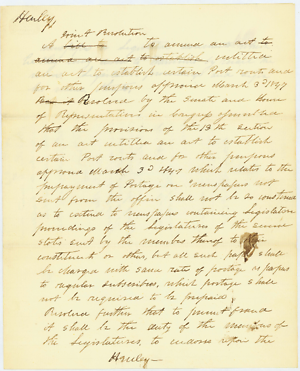 Henley
Joint Resolution
A bill to to amend an act to
amend an act to establish entitled
an act to establish certain Post routs and
for other purposes approved March 3rd 1847
Resolved by the Senate and House
of Representatives in Congress assembled
that the provisions of the 13th section
of an act entitled an act to establish
certain Post routs and for other purposes
approved March 3rd 1847 which relates to the
prepayment of Postage on newspapers not
sent from the office shall not be so construed
as to extend to newspapers containing Legislative
proceedings of the Legislatures of the
states sent by the members thereof to
constituents or others, but all such papers shall
be charged with same rate of postage as papers
to regular subscribers, which postage shall
not be required to be prepaid
Resolved further that to prevent fraud
it shall be the duty of the members of
the Legislatures, to endorse upon the
Henley